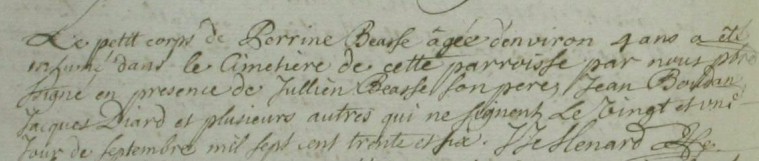 Le petit corps de Perrine Beasse âgée d'environ 4 ans a été
inhumé dans le Cimetiere de cette parroisse par nous
signé en presence de Jullien Beasse son pere, Jean
Jacques Diard et plusieurs autres qui ne signent Le Vingt et une
Jour de septembre mil sept cent trente et six.